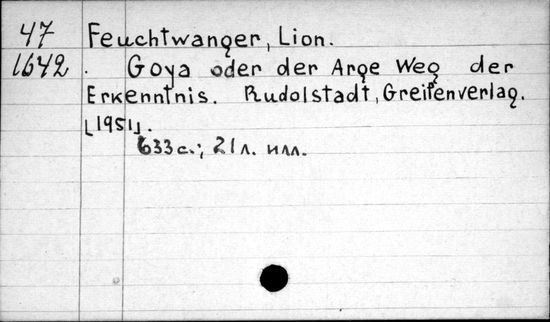 47 Feuchtwanger, Lion.
1642. Goya oder der Arge Weg der
Erkenntnis. Rudolstadt, Greifenverlag.
[1951].
633 с.; 21 л. илл.